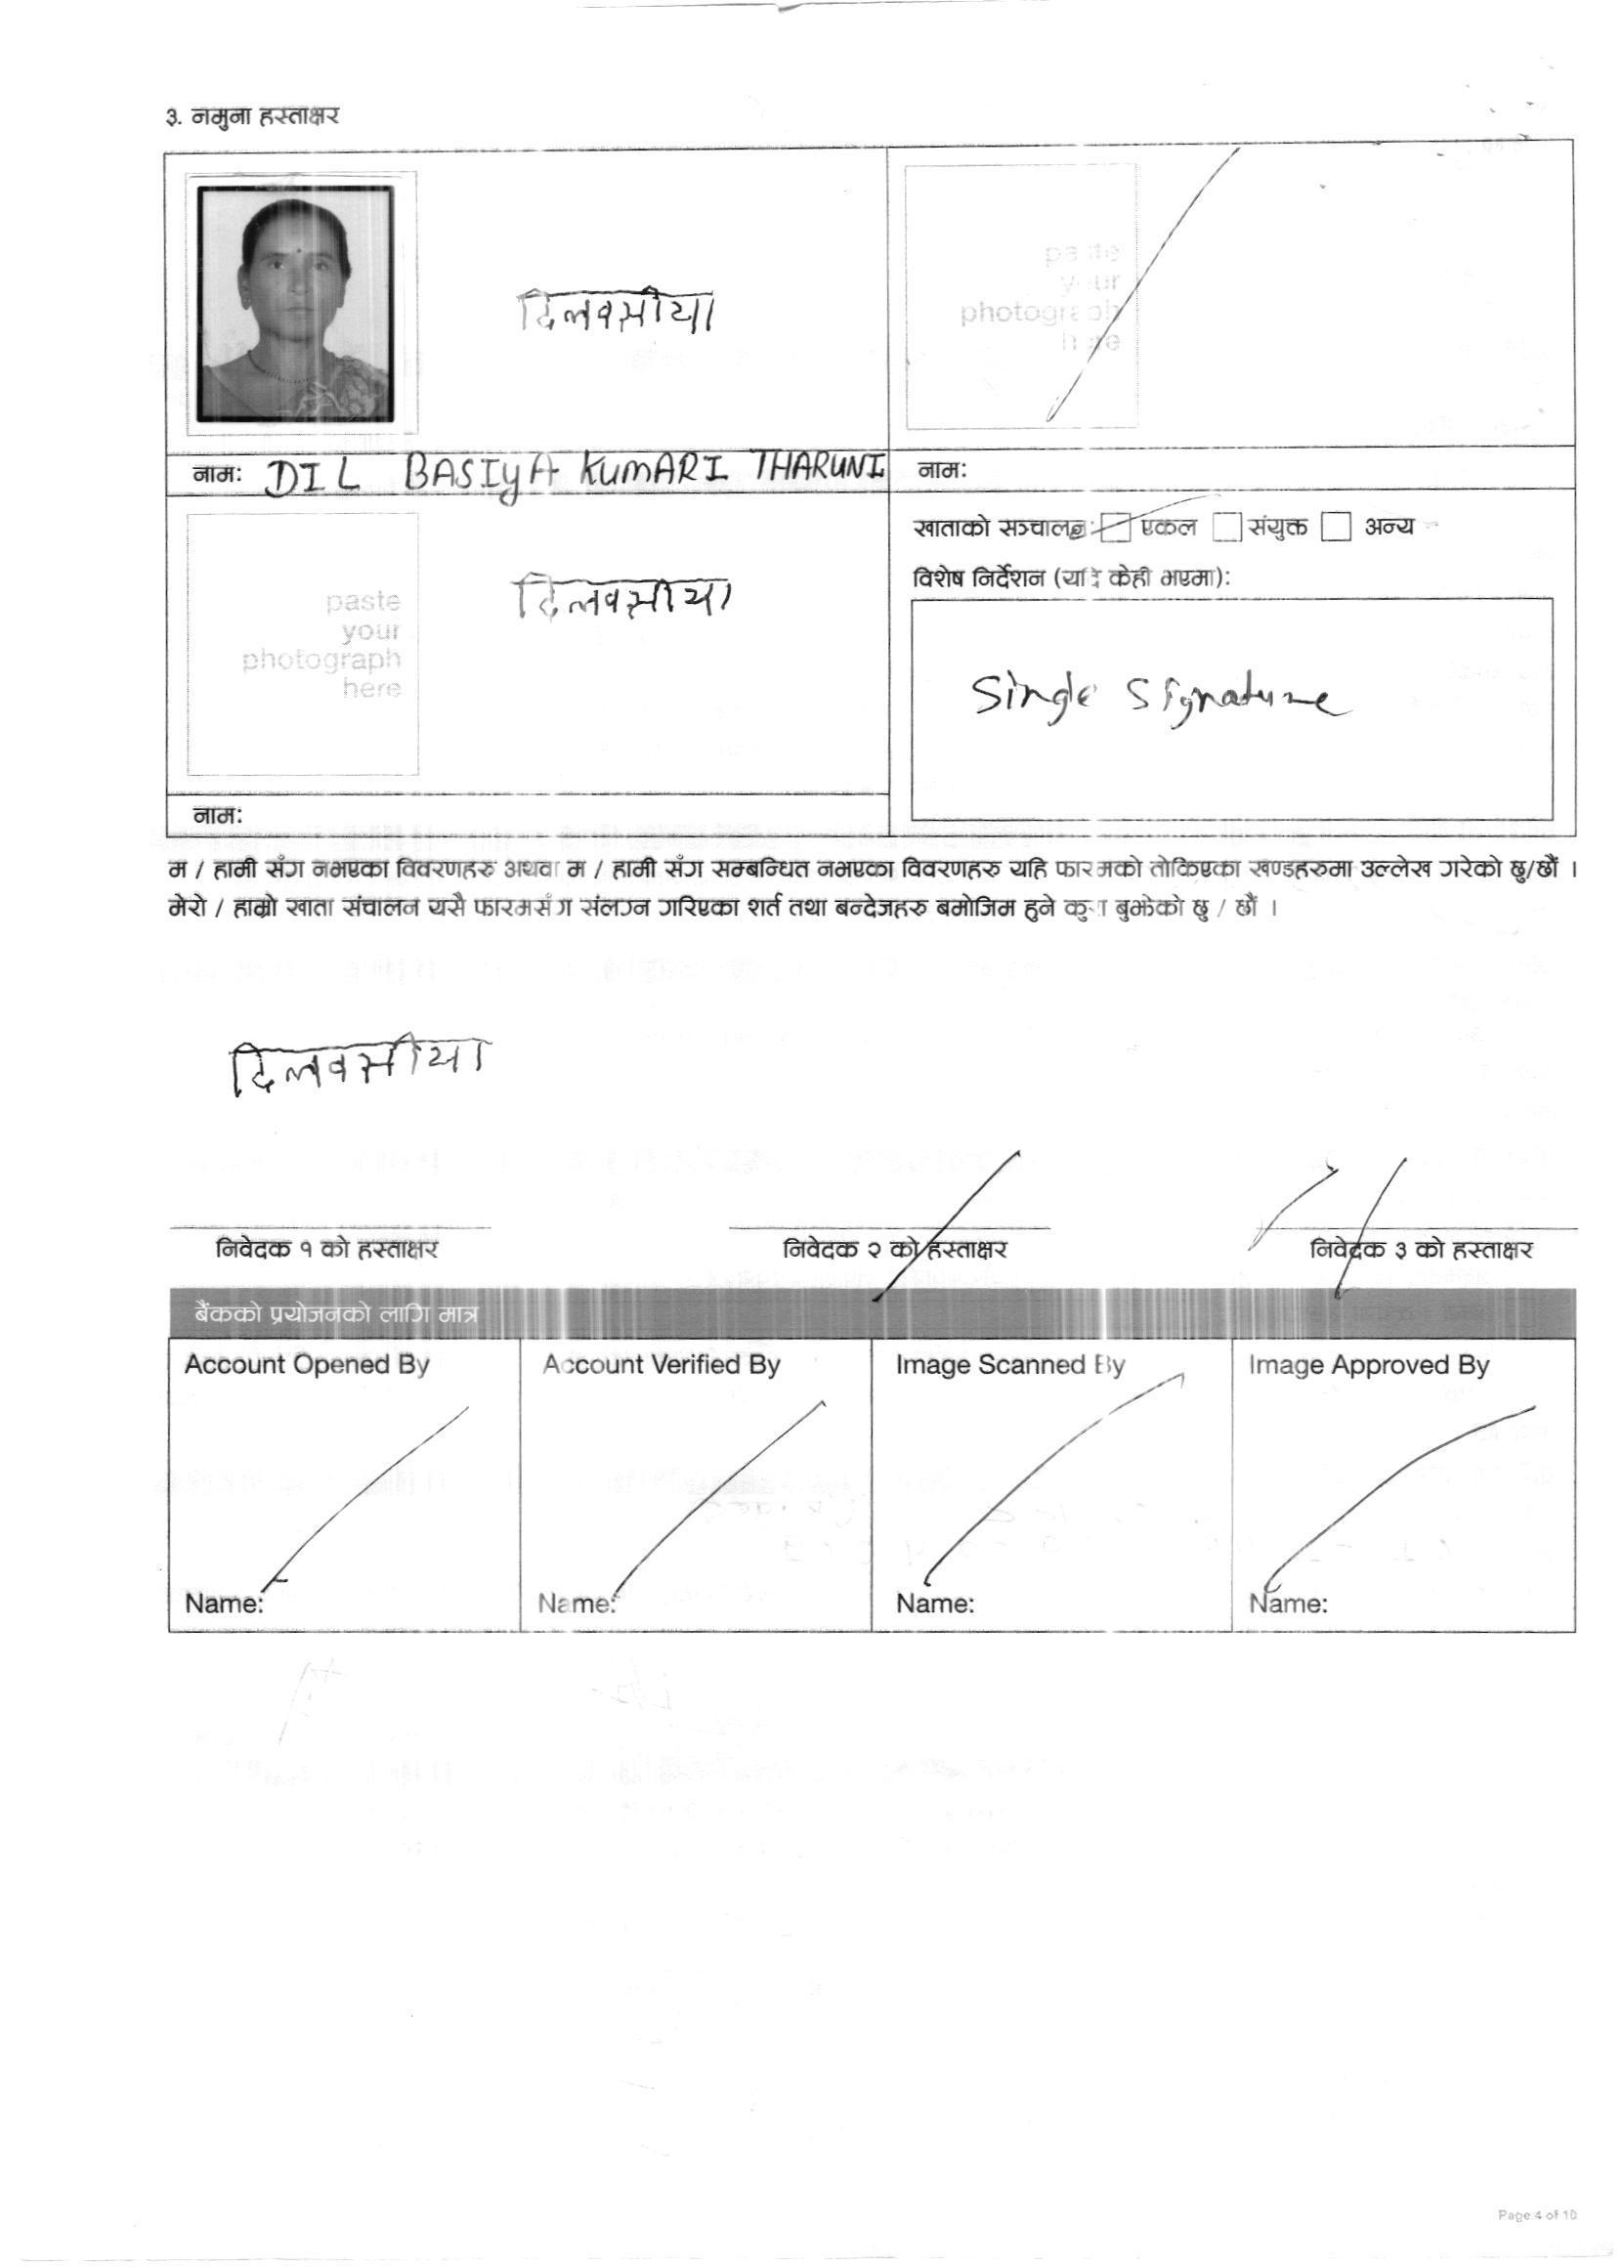 ३. नमुना हस्ताक्षर
दिलवसीया
paste
your
photograph
here
नाम: DIL BASIYA KUMARI THARUNI
नाम:
खाताको सञ्चालन: एकल संयुक्त अन्य
विशेष निर्देशन (यदि केही भएमा):
paste
your
photograph
here
दिलवसीया
Single Signature
नाम:
म / हामी सँग नभएका विवरणहरु अथवा म / हामी सँग सम्बन्धित नभएका विवरणहरु यहि फारमको तोकिएका खण्डहरुमा उल्लेख गरेको छु/छौं ।
मेरो / हाम्रो खाता संचालन यसै फारमसँग संलग्न गरिएका शर्त तथा बन्देजहरु बमोजिम हुने कुरा बुझेको छु / छौं ।
दिलवसीया
निवेदक १ को हस्ताक्षर निवेदक २ को हस्ताक्षर निवेदक ३ को हस्ताक्षर
बैंकको प्रयोजनको लागि मात्र
Account Opened By Account Verified By Image Scanned By Image Approved By
Name: Name: Name: Name:
Page 4 of 10